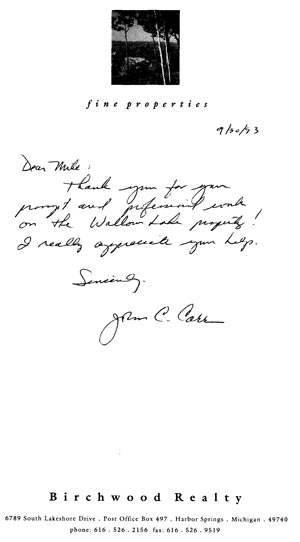 fine properties
9/20/93
Dear Mike:
Thank you for your
prompt and professional work
on the Walloon Lake property!
I really appreciate your help.
Sincerely,
John C. Carr
Birchwood Realty
6789 South Lakeshore Drive . Post Office Box 497 . Harbor Springs . Michigan . 49740
phone: 616 . 526 . 2156 fax: 616 . 526 . 9519